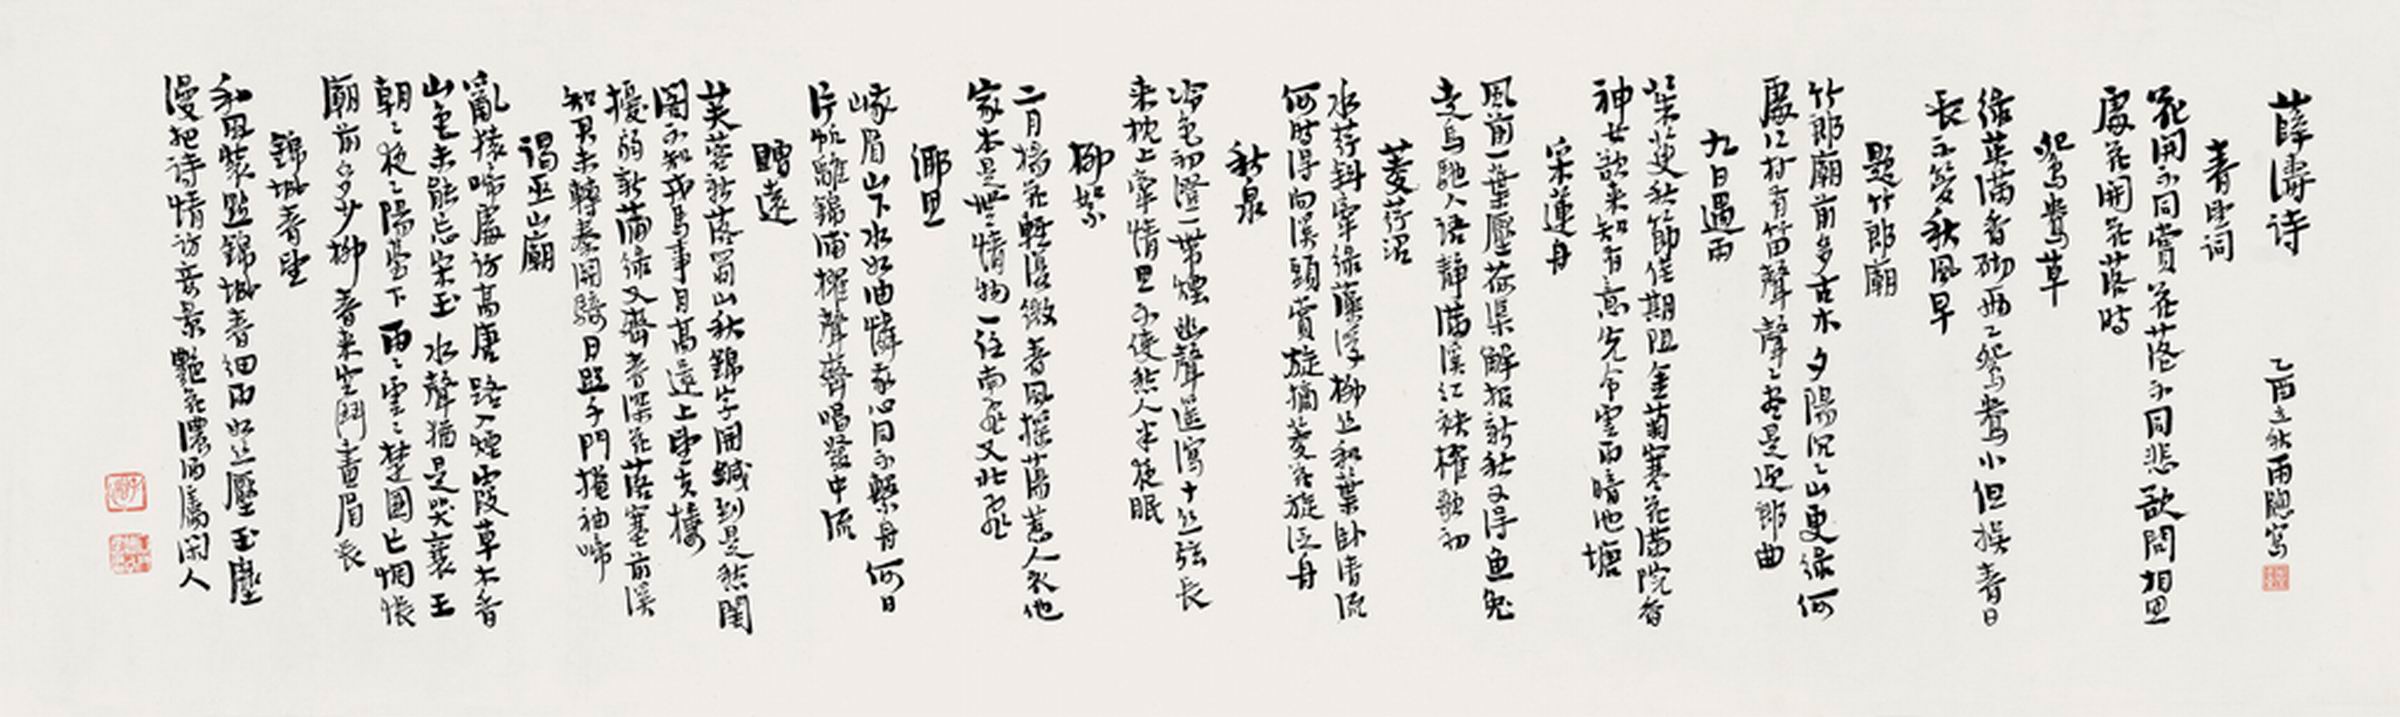 薛濤诗
乙酉立秋雨聰寫
春望词
花開不同賞花落不同悲欲問相思
處花開花落時
鴛鴦草
綠英滿香砌兩々鴛鴦小但娱春日
長不管秋風早
題竹郎廟
竹郎廟前多古木夕陽沉々山更绿何
處江村有笛聲聲聲盡是迎郎曲
九日遇雨
茱萸秋節佳期阻金菊寒花满院香
神女欲来知有意先令雲雨暗池塘
采蓮舟
風前一葉壓荷渠解报新秋又得魚兔
走烏馳人语静满溪红袂棹歌初
菱荇沼
水荇斜牽绿藻浮柳丝和葉卧清流
何时得向溪頭賞旋摘菱花旋泛舟
秋泉
冷色初澄一带煙幽聲遥瀉十丝弦長
来枕上牽情思不使愁人半夜眠
柳絮
二月揚花輕復微春風摇荡惹人衣他
家本是無情物一任南飛又北飛
鄉思
峨眉山下水如油憐我心同不繫舟何日
片帆離錦浦櫂聲齊唱發中流
贈遠
芙蓉新落蜀山秋錦字開缄到是愁闺
閣不知戎馬事月高還上望夫樓
擾弱新蒲绿又齊春深花落塞前溪
知君未轉秦關騎日照千門掩袖啼
谒巫山廟
亂猿啼處访高唐路入煙霞草木香
山色未能忘宋玉水聲猶是哭襄王
朝々夜々陽臺下雨々雲々楚國亡惆悵
廟前多少柳春来空鬥畫眉長
錦城春望
和風裝點錦城春细雨如丝壓玉塵
漫把诗情访奇景艷花濃酒屬闲人